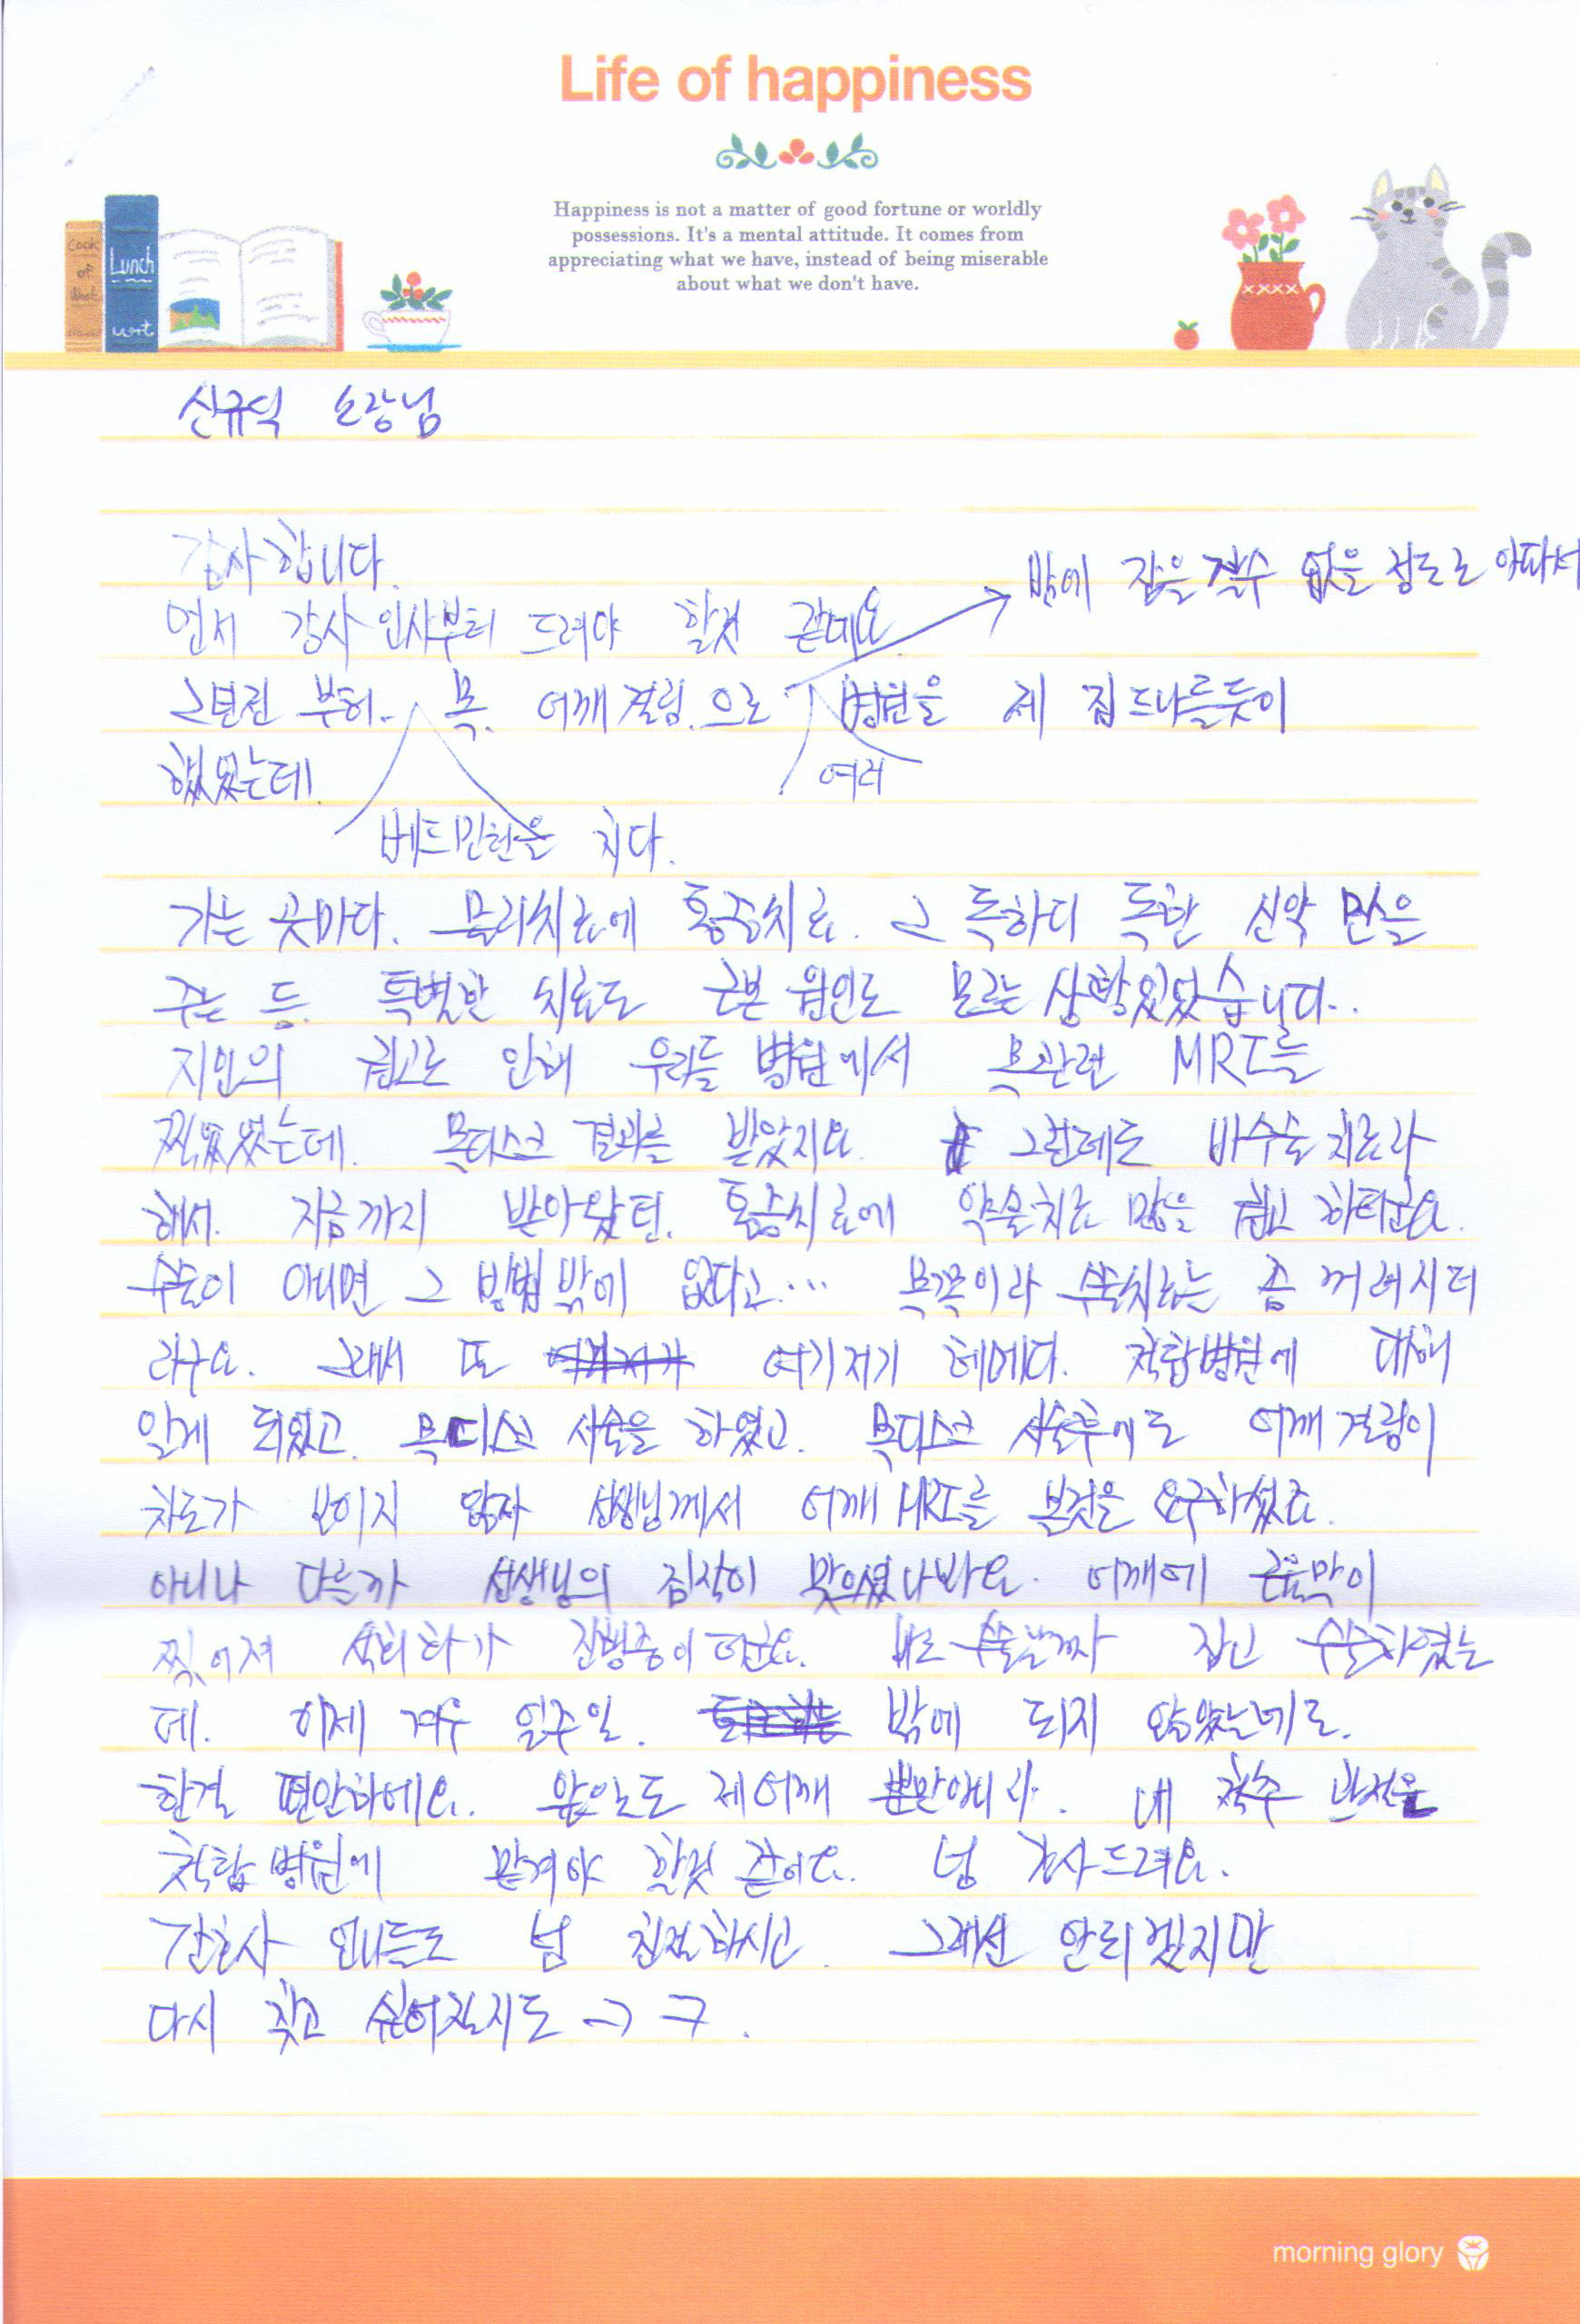 Life of happiness
Happiness is not a matter of good fortune or worldly
possessions. It's a mental attitude. It comes from
appreciating what we have, instead of being miserable
about what we don't have.
Cook
of
Lunch
신규덕 소장님
감사합니다.
밖에 잠을 잘수 없을 정도로 아파서
먼저 감사 인사부터 드려야 할것 같네요
2년전 부터. 목. 어깨결림.으로 병원을 제 집드나들듯이
했었는데.
여러
베드민턴을 치다.
가는 곳마다. 물리치료에 통증치료. 그 독하디 독한 신약 만을
주는 등. 특별한 치료도 근본 원인도 모르는 상황이었습니다..
지인의 권고로 인해 우리들 병원에서 목관련 MRI를
찍었었는데. 목디스크 결과를 받았지요. 그런데도 비수술 치료라
해서. 지금까지 받아왔던. 통증치료에 약물치료 만을 권고 하더군요.
수술이 아니면 그 방법 밖에 없다고... 목쪽이라 수술치료는 좀 꺼려시더
라구요. 그래서 또 여기저기 헤메다. 척탑병원에 대해
알게 되었고. 목디스크 시술을 하였고. 목디스크 시술후에도 어깨 결림이
차도가 보이지 않자 선생님께서 어깨 MRI를 볼것을 요구하셨죠.
아니나 다를까 선생님의 짐작이 맞으셨나봐요. 어깨에 근육막이
찢어져 석회화가 진행중이더군요. 바로 수술날짜 잡고 수술하였는
데. 이제 겨우 일주일. 밖에 되지 않았는데도.
한결 편안하네요. 앞으로도 제어깨 뿐만아니라. 내 척추 관절을
척탑 병원에 맡겨야 할것 같아요. 넘 감사드려요.
간호사 언니들도 넘 친절하시고. 그래선 안되겠지만
다시 찾고 싶어질지도 ㅋㅋ.
morning glory